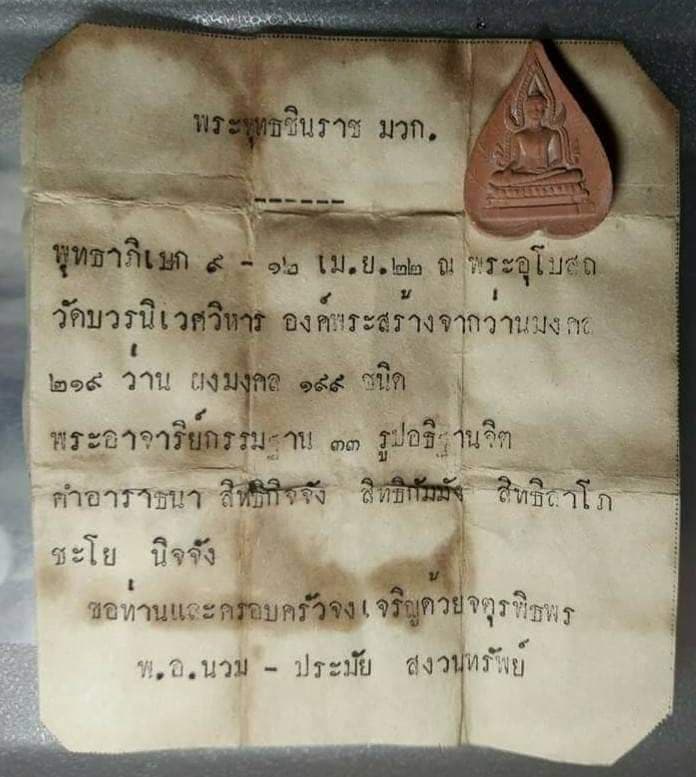 พระพุทธชินราช มวก.
------
พุทธาภิเษก ๙ - ๑๒ เม.ย.๒๒ ณ พระอุโบสถ
วัดบวรนิเวศวิหาร องค์พระสร้างจากว่านมงคล
๒๑๙ ว่าน ผงมงคล ๑๙๙ ชนิด
พระอาจาริย์กรรมฐาน ๓๓ รูปอธิฐานจิต
คำอาราธนา สิทธิกิจจัง สิทธิกัมมัง สิทธิลาโภ
ชะโย นิจจัง
ขอท่านและครอบครัวจงเจริญด้วยจตุรพิธพร
พ.อ.นวม - ประมัย สงวนทรัพย์